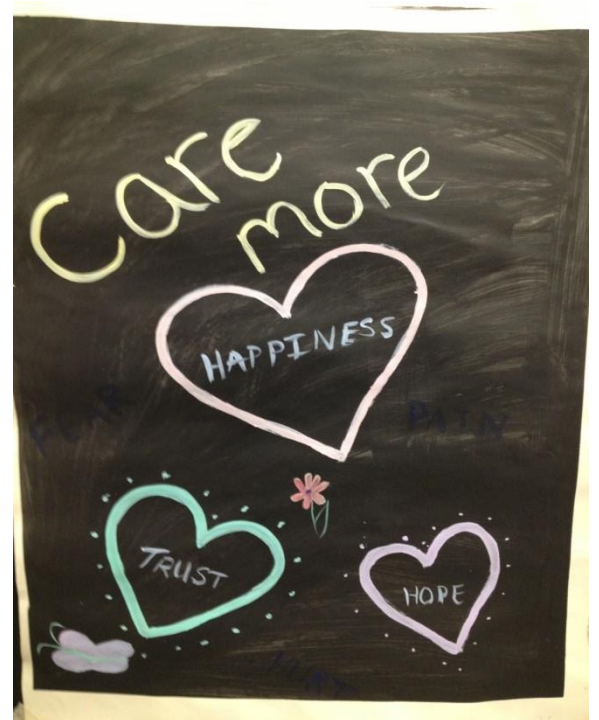 Care
more
HAPPINESS
FEAR
PAIN
TRUST
HOPE
HURT